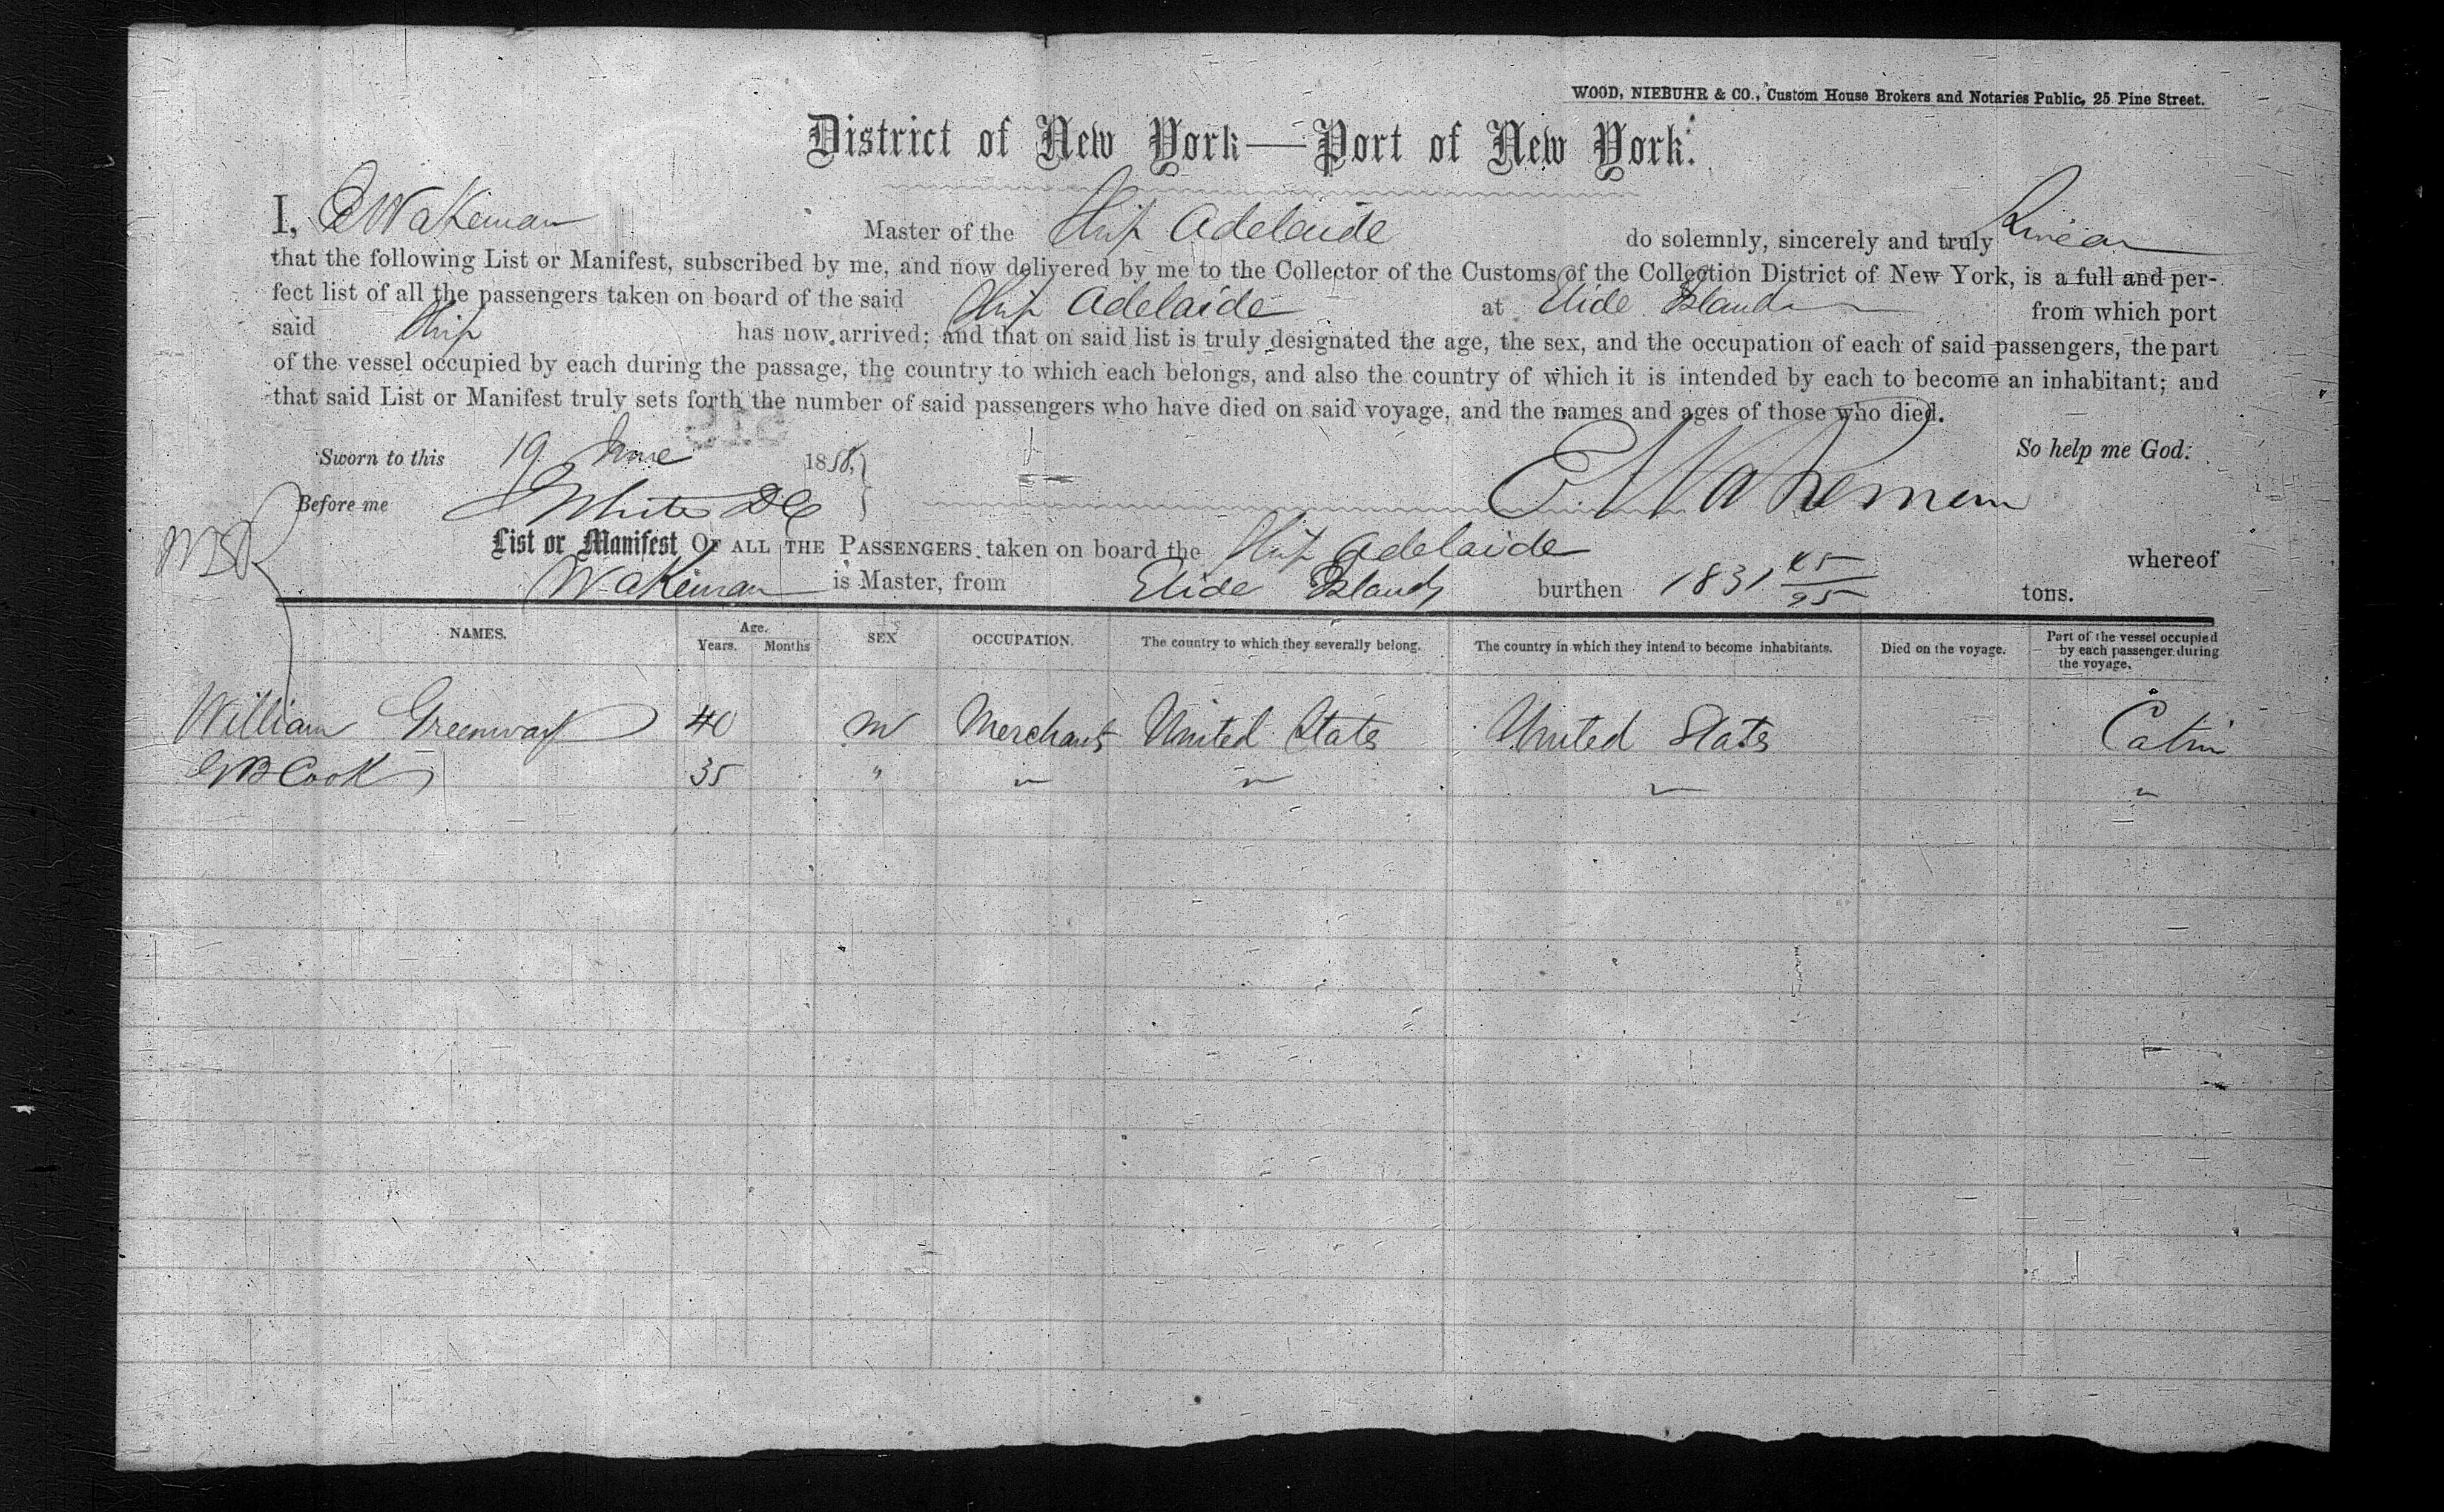 WOOD, NIEBUHR & CO., Custom House Brokers and Notaries Public, 25 Pine Street.
District of New York—Port of New York.
I, E Wakeman Master of the Ship Adelaide do solemnly, sincerely and truly swear
that the following List or Manifest, subscribed by me, and now delivered by me to the Collector of the Customs of the Collection District of New York, is a full and per-
fect list of all the passengers taken on board of the said Ship Adelaide at Elide Islands from which port
said Ship has now arrived; and that on said list is truly designated the age, the sex, and the occupation of each of said passengers, the part
of the vessel occupied by each during the passage, the country to which each belongs, and also the country of which it is intended by each to become an inhabitant; and
that said List or Manifest truly sets forth the number of said passengers who have died on said voyage, and the names and ages of those who died.
So help me God:
Sworn to this 19 June 1858,
E Wakeman
Before me White DC
List or Manifest OF ALL THE PASSENGERS taken on board the Ship Adelaide whereof
Wakeman is Master, from Elide Islands burthen 1831 45/95 tons.
NAMES. Age. Years. Months SEX OCCUPATION. The country to which they severally belong. The country in which they intend to become inhabitants. Died on the voyage. Part of the vessel occupied by each passenger during the voyage.
William Greenway 40 M Merchants United States United States Cabin
Cook 35 " " " " "